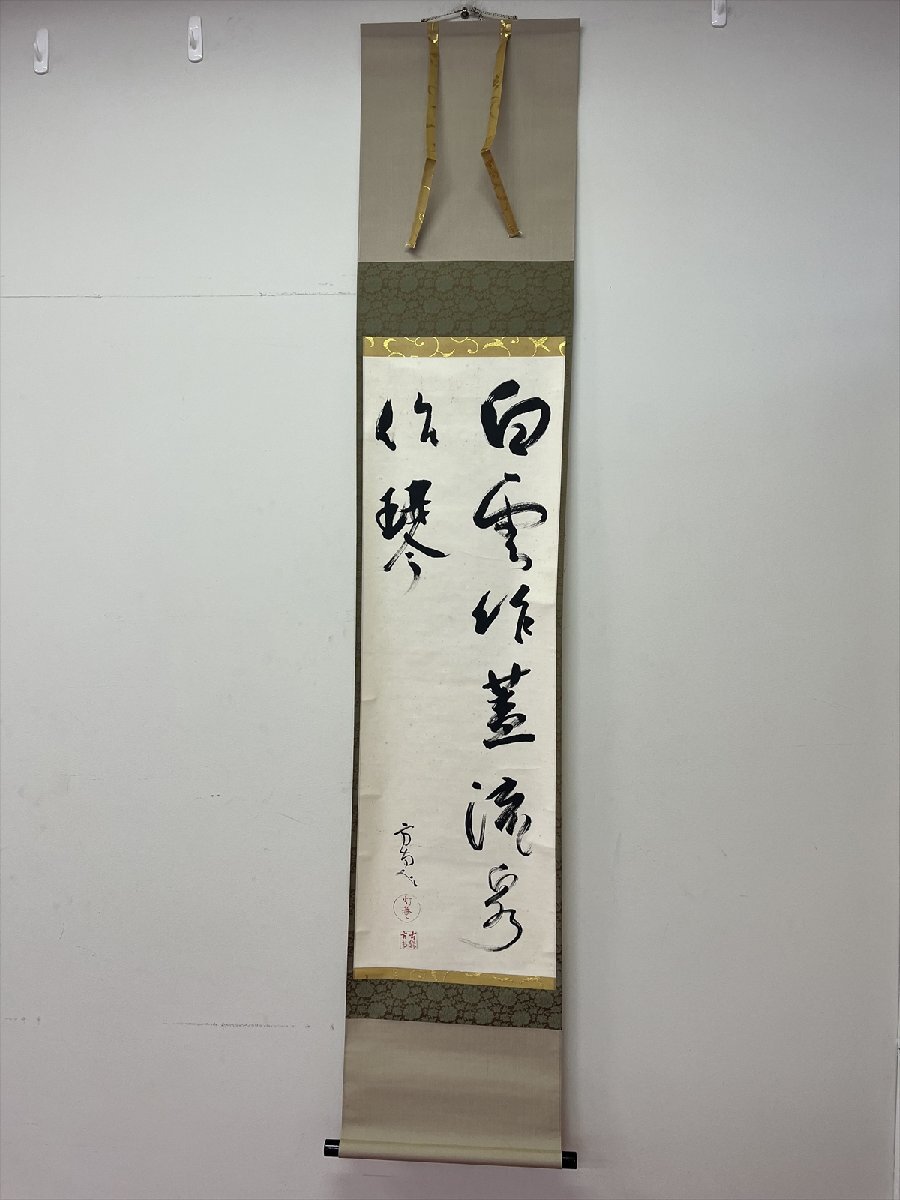 白雲作蓋流泉
作琴